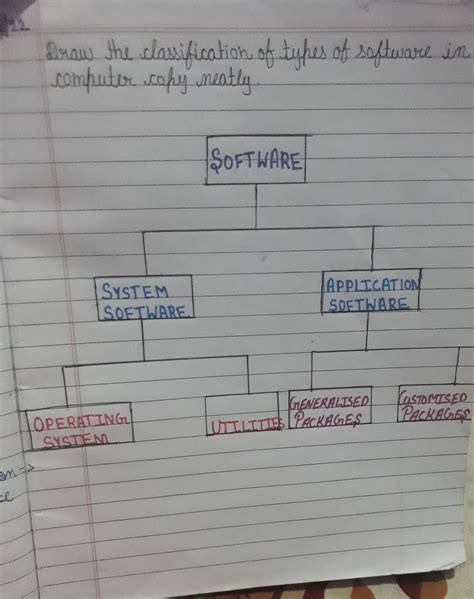 22
Draw the classification of types of software in
computer copy neatly.
SOFTWARE
SYSTEM
SOFTWARE
APPLICATION
SOFTWARE
OPERATING
SYSTEM
UTILITIES
GENERALISED
PACKAGES
CUSTOMISED
PACKAGES